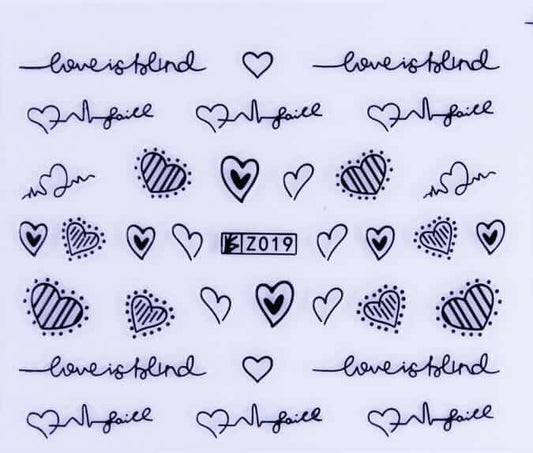 love is blind love is blind
faill faill faill
Z019
love is blind love is blind
faill faill faill